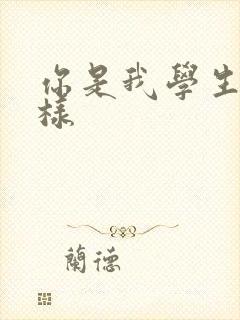 你是我學生
樣
蘭德